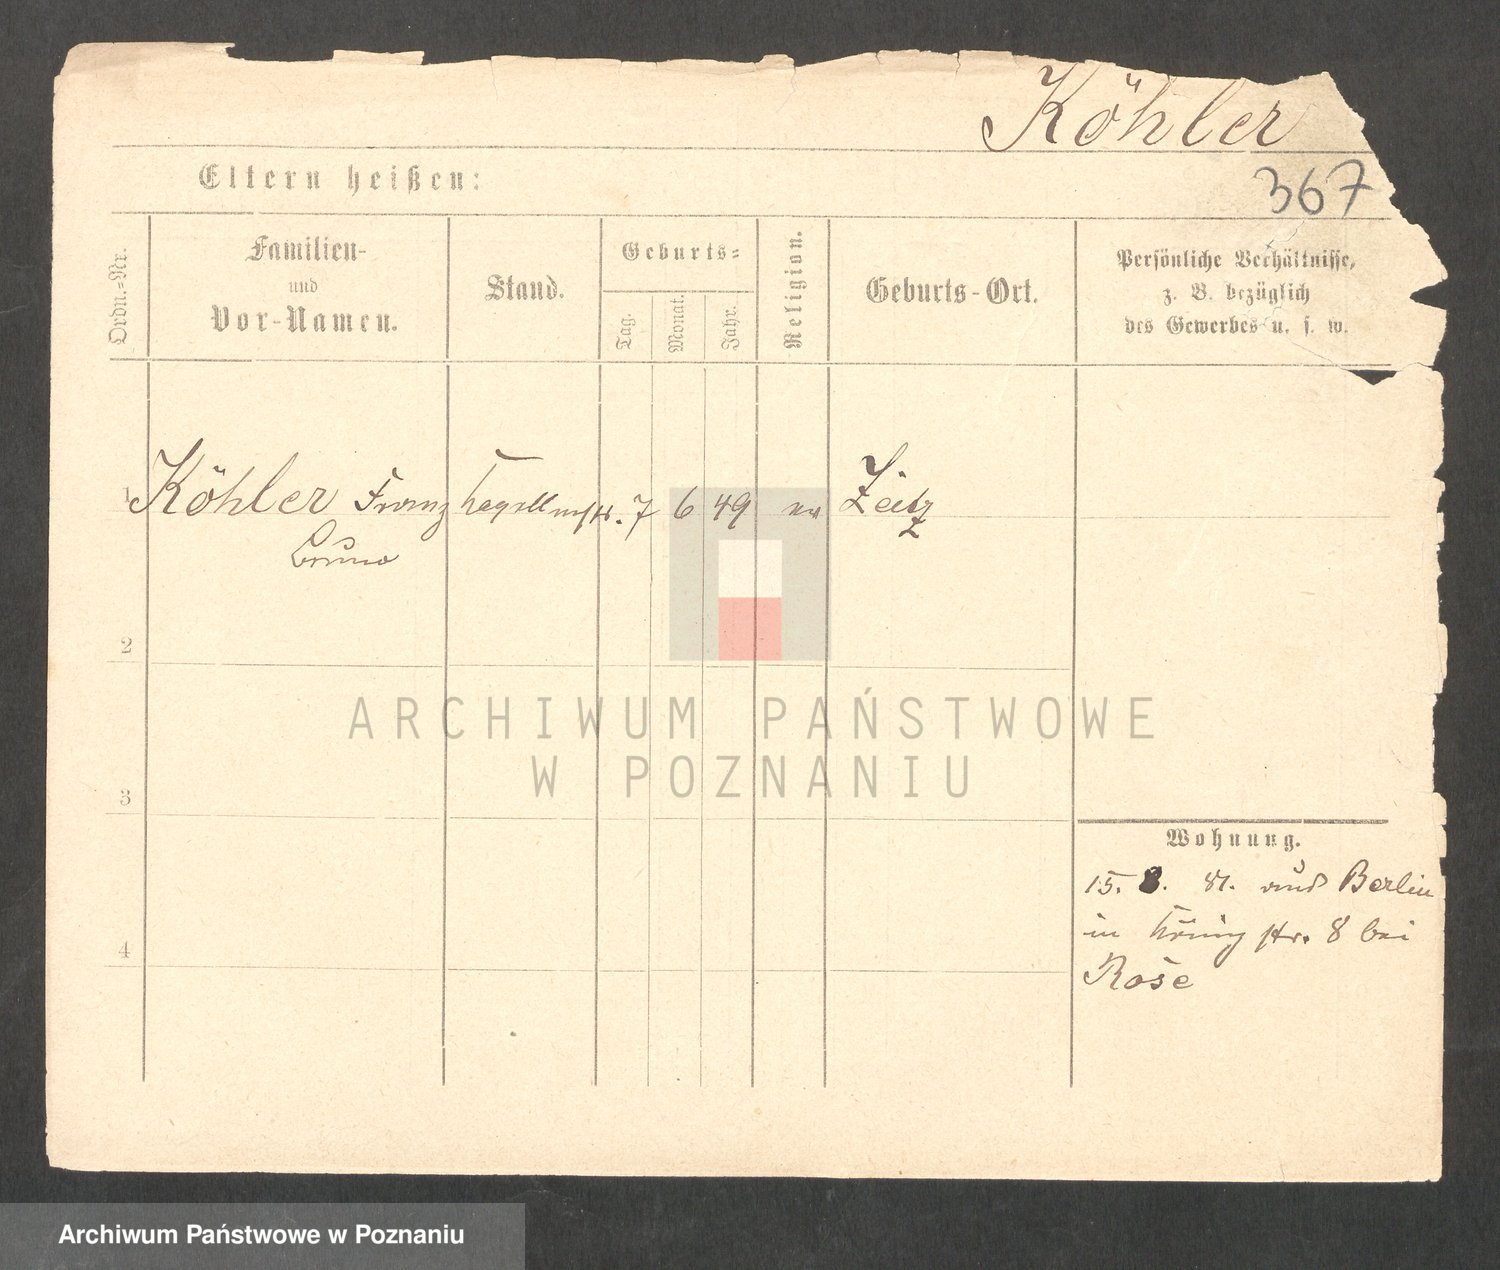 Köhler
367
Eltern heißen:
Ordn.-Nr.
Familien-
und
Vor-Namen.
Stand.
Geburts-
Tag.
Monat.
Jahr.
Religion.
Geburts-Ort.
Persönliche Verhältnisse,
z. B. bezüglich
des Gewerbes u. s. w.
1 Köhler Franz Kapellmstr. 7 6 49 ev Zeitz
Bruno
2
3
4
Wohnung.
15. 8. 81. aus Berlin
in König str. 8 bei
Rose
ARCHIWUM PAŃSTWOWE
W POZNANIU
Archiwum Państwowe w Poznaniu